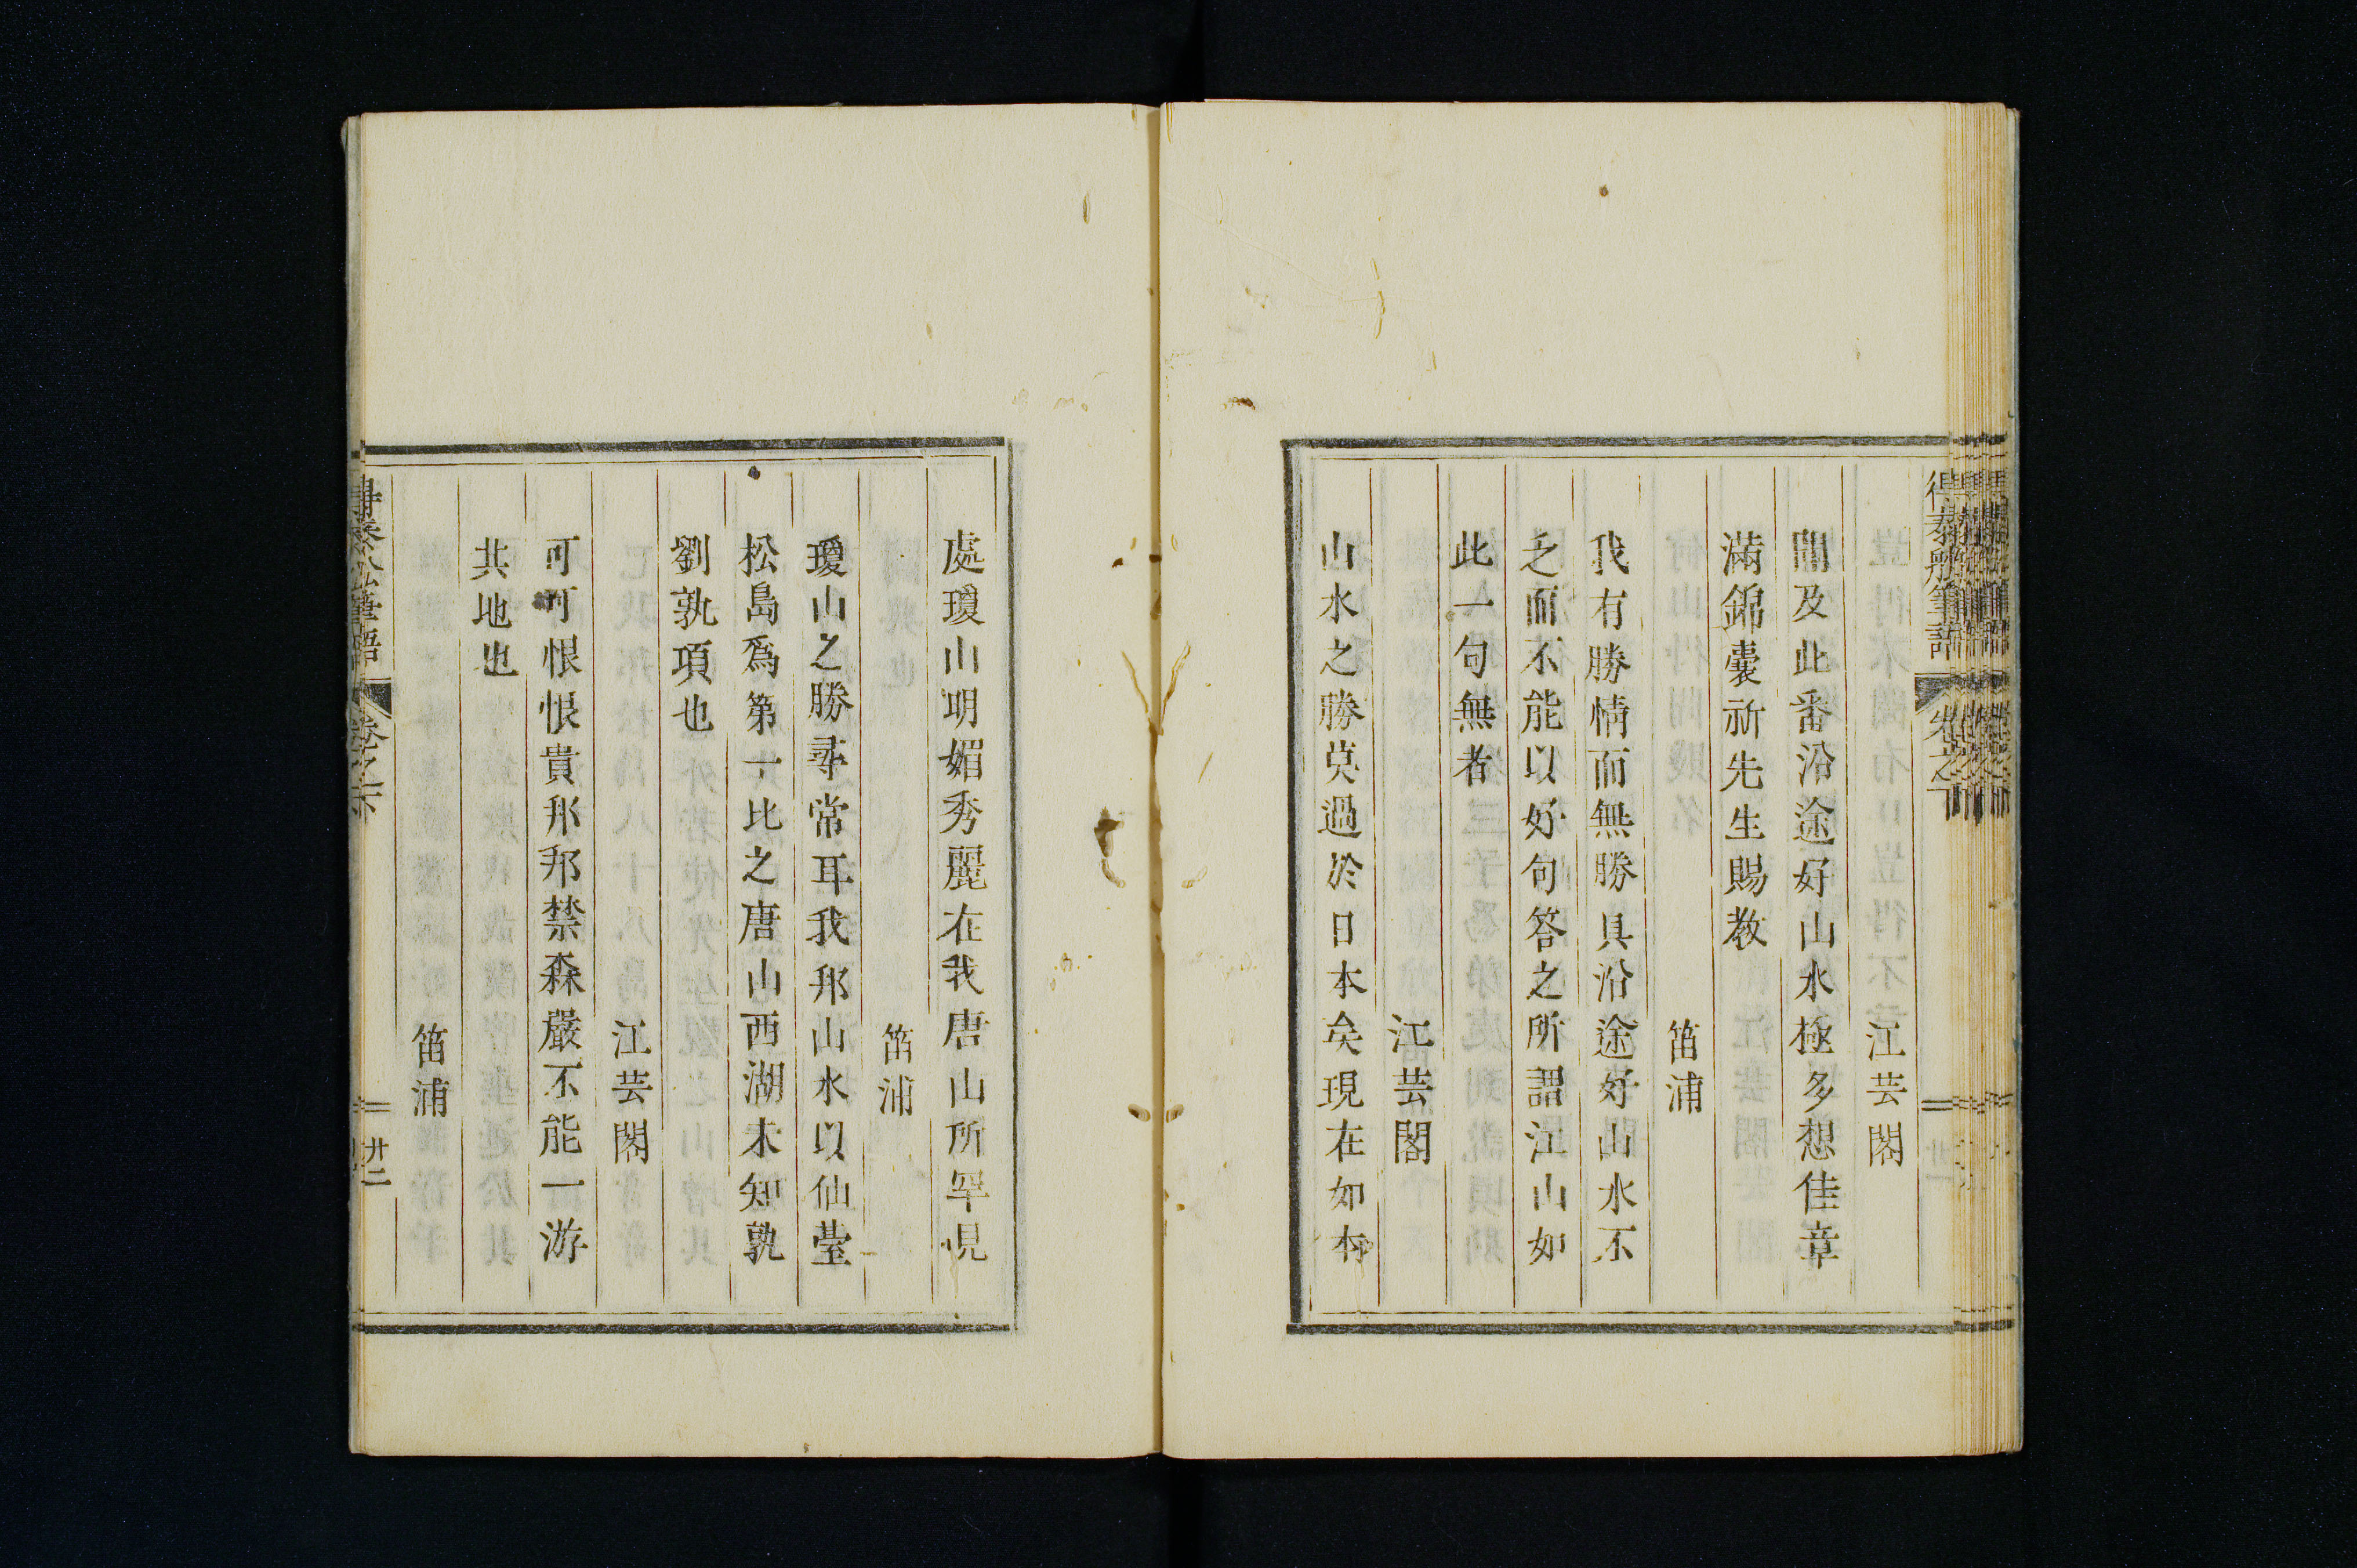 得泰舩筆語 卷之下
江芸閣
聞及此番沿途好山水極多想佳章
滿錦囊祈先生賜教
笛浦
我有勝情而無勝具沿途好山水不
乏而不能以好句答之所謂江山如
此一句無者
江芸閣
山水之勝莫過於日本矣現在如本
處瓊山明媚秀麗在我唐山所罕見
笛浦
瓊山之勝尋常耳我邦山水以仙䑓
松島爲第一比之唐山西湖未知孰
劉孰項也
江芸閣
可可恨恨貴邦邦禁森嚴不能一游
共地也
笛浦
廿二